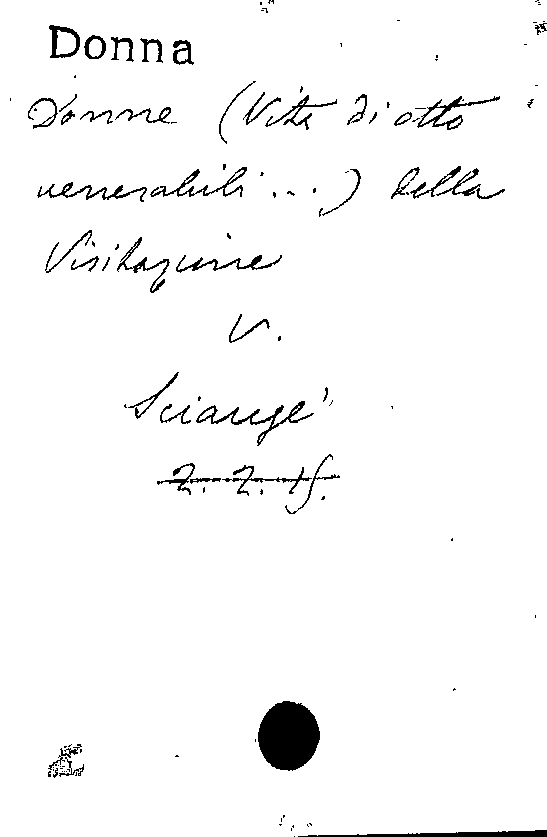 Donna
Donne (Vite di otto
venerabili ...) della
Visitazione
V.
Sciangé
2. 2. 15.